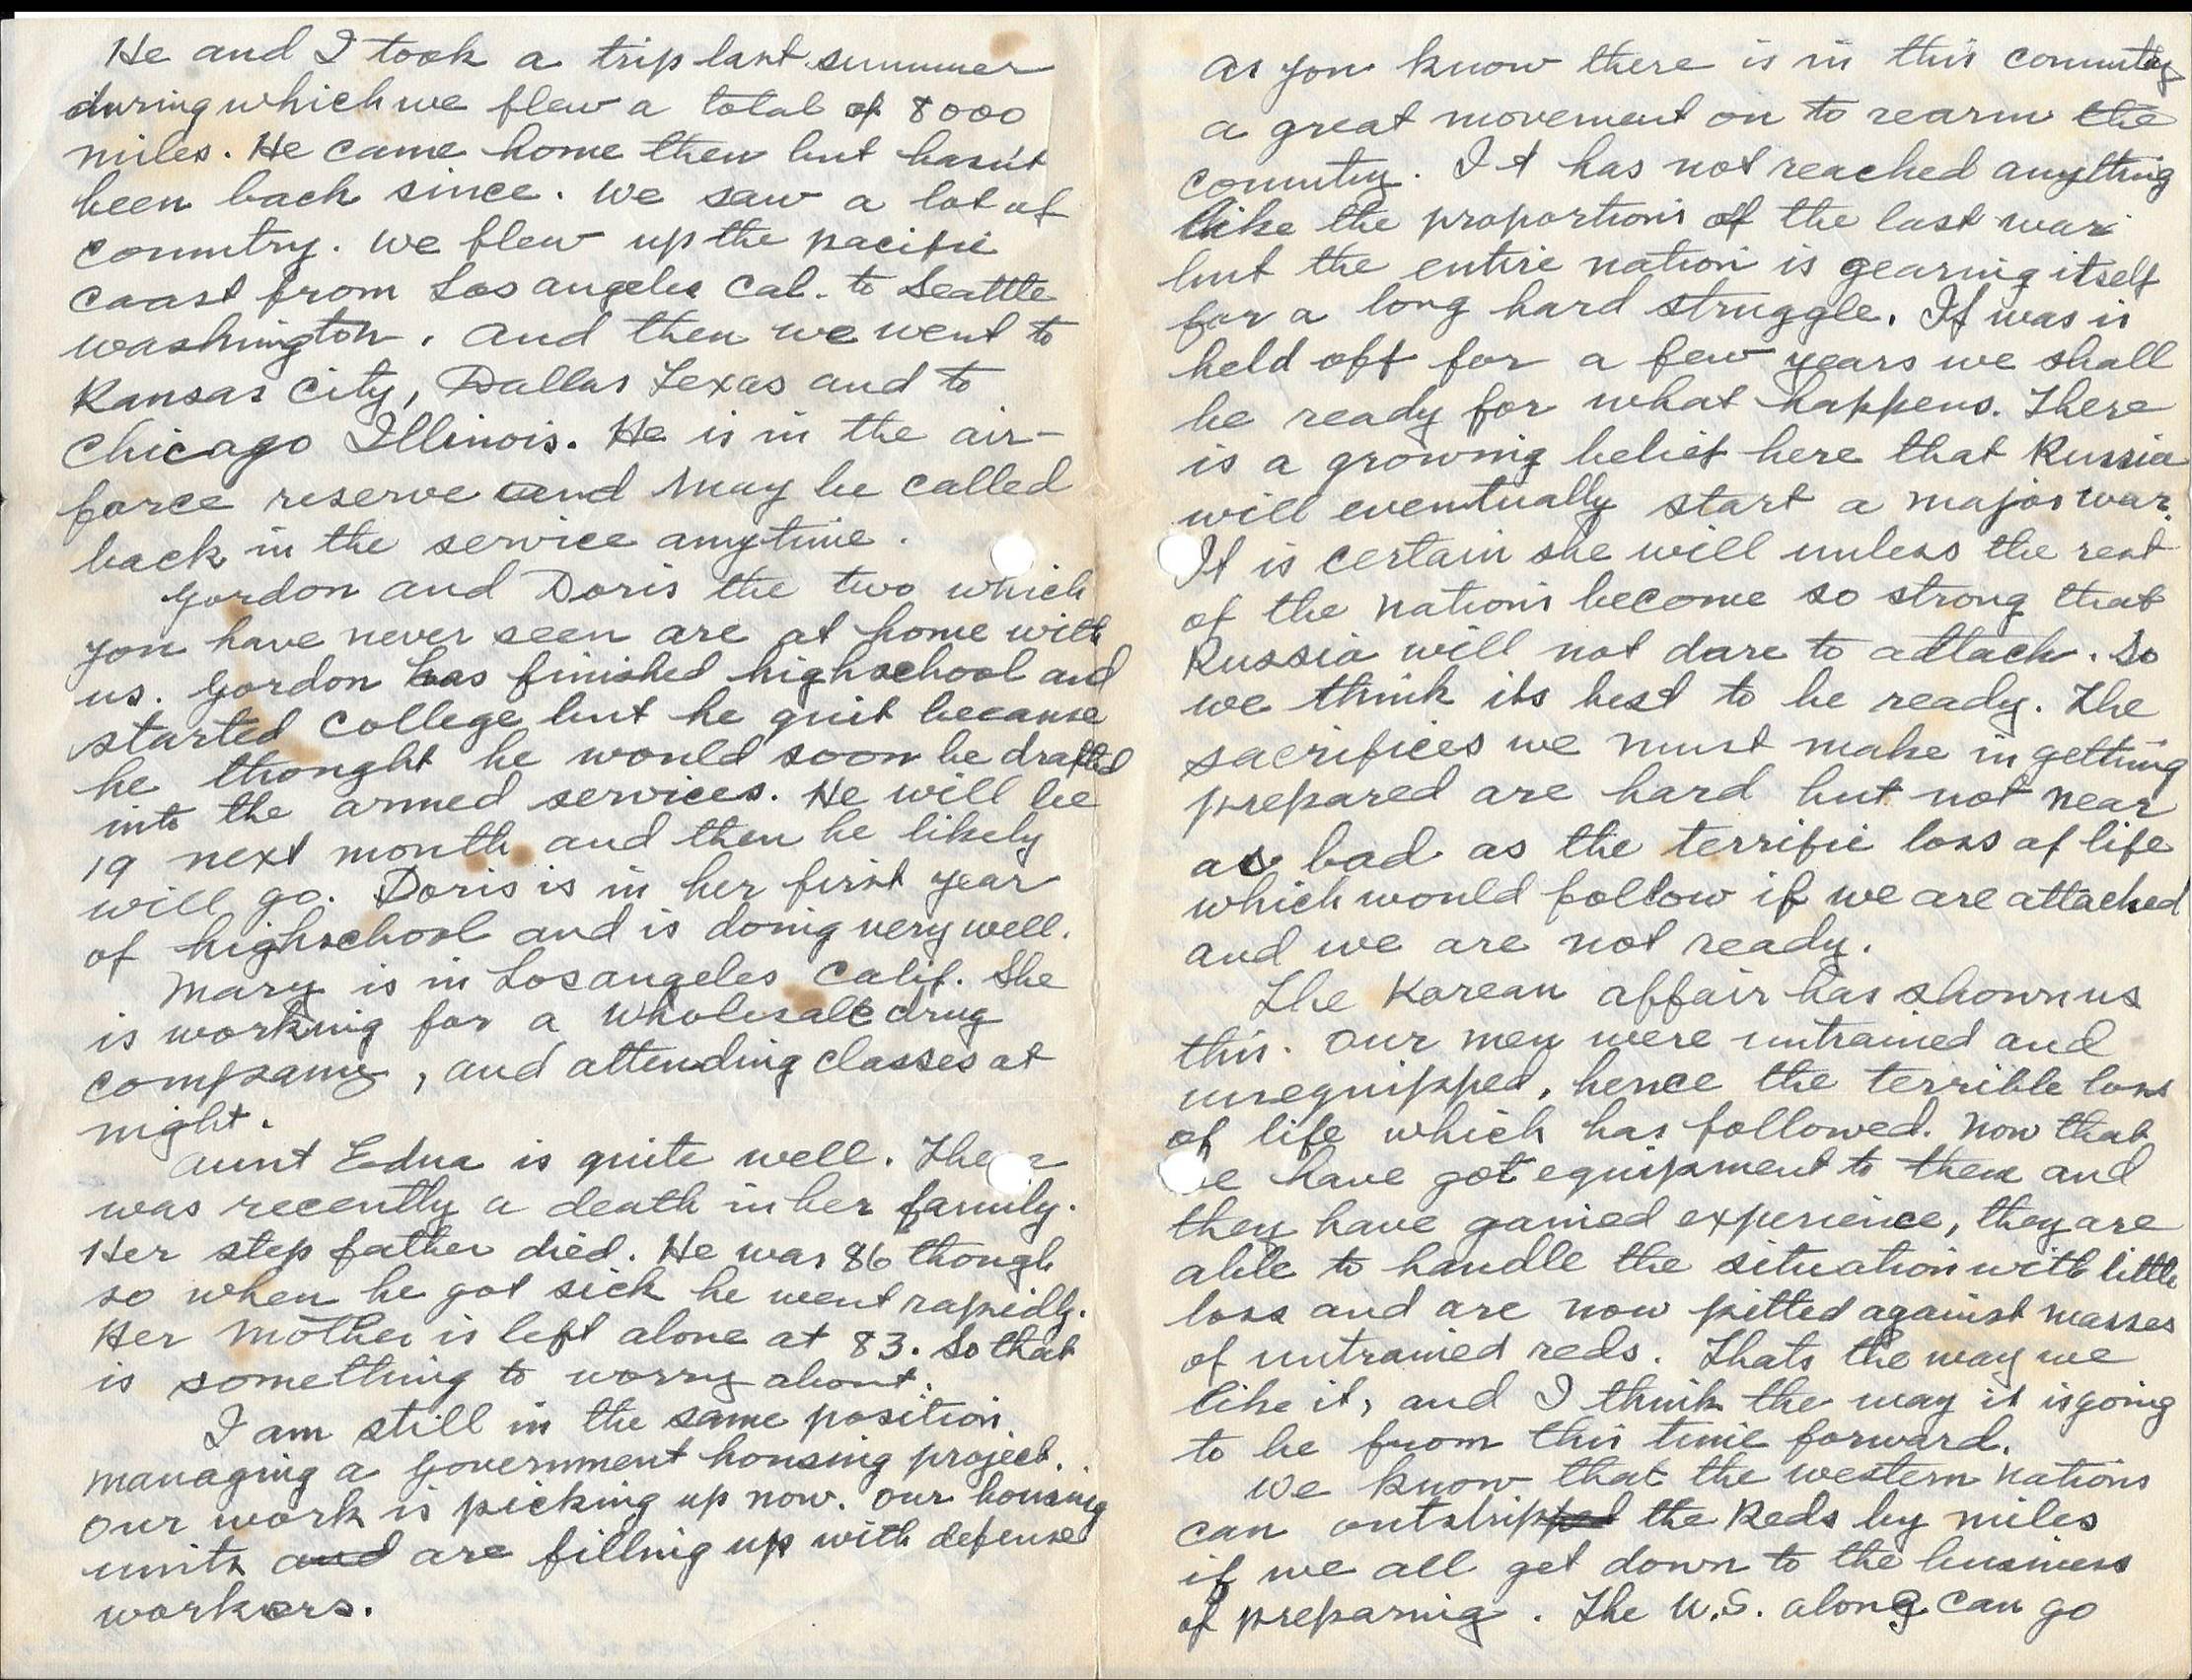 He and I took a trip last summer
during which we flew a total of 8000
miles. He came home then but hasn't
been back since. We saw a lot of
country. We flew up the pacific
coast from Los angeles Cal. to Seattle
Washington. And then we went to
Kansas City, Dallas Texas and to
Chicago Illinois. He is in the air-
force reserve and may be called
back in the service anytime.
Gordon and Doris the two which
you have never seen are at home with
us. Gordon has finished highschool and
started college but he quit because
he thought he would soon be drafted
into the armed services. He will be
19 next month and then he likely
will go. Doris is in her first year
of highschool and is doing very well.
Mary is in Los angeles Calif. She
is working for a wholesale drug
company, and attending classes at
night.
Aunt Edna is quite well. There
was recently a death in her family.
Her step father died. He was 86 though
so when he got sick he went rapidly.
Her mother is left alone at 83. So that
is something to worry about.
I am still in the same position
managing a government housing project.
Our work is picking up now. Our housing
units and are filling up with defense
workers.
As you know there is in this country
a great movement on to rearm the
country. It has not reached anything
like the proportions of the last war
but the entire nation is gearing itself
for a long hard struggle. If was is
held off for a few years we shall
be ready for what happens. There
is a growing belief here that Russia
will eventually start a major war.
It is certain she will unless the rest
of the nations become so strong that
Russia will not dare to attack. So
we think its best to be ready. The
sacrifices we must make in getting
prepared are hard but not near
as bad as the terrific loss of life
which would follow if we are attacked
and we are not ready.
The Korean affair has shown us
this. Our men were untrained and
unequipped, hence the terrible loss
of life which has followed. Now that
we have got equipment to them and
they have gained experience, they are
able to handle the situation with little
loss and are now pitted against masses
of untrained reds. Thats the way we
like it, and I think the way it is going
to be from this time forward.
We know that the western nations
can outstripped the Reds by miles
if we all get down to the business
of preparing. The U.S. along can go